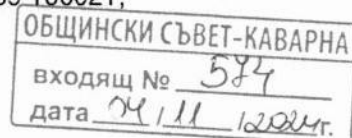 ОБЩИНСКИ СЪВЕТ-КАВАРНА
входящ № 574
дата 04/11/2024г.